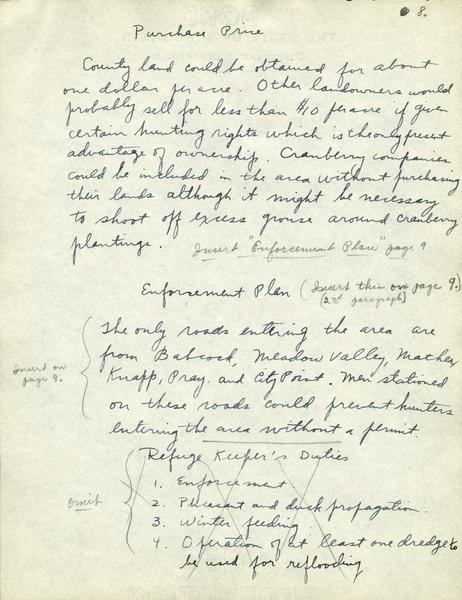 8.
Purchase Price
County land could be obtained for about
one dollar per acre. Other landowners would
probably sell for less than $10 per acre if given
certain hunting rights which is the only present
advantage of ownership. Cranberry companies
could be included in the area without purchasing
their lands although it might be necessary
to shoot off excess grouse around cranberry
plantings.
Insert "Enforcement Plan" page 9
Enforcement Plan (Insert this on page 9.)
(2nd paragraph)
The only roads entering the area are
from Babcock, Meadow Valley, Mather,
Insert on
page 9.
Knapp, Pray, and City Point. Men stationed
on these roads could prevent hunters
entering the area without a permit.
Refuge Keeper's Duties
1. Enforcement
Omit
2. Pheasant and duck propagation.
3. Winter feeding
4. Operation of at least one dredge to
be used for reflooding